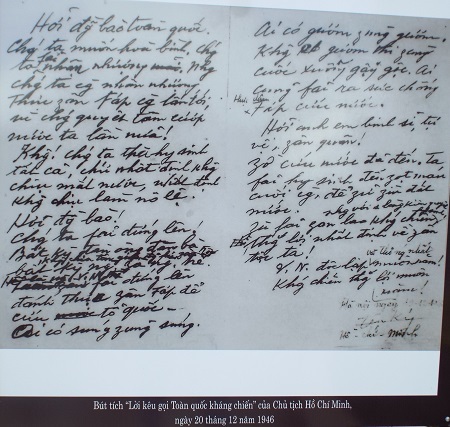 Hỡi đg bào toàn quốc.
Chg ta muốn hoà bình, chg
ta fải nhân nhượng. Nhg
chg ta cg nhân nhượng
thực zân Fáp cg lấn tới,
vì chg quyết tâm cướp
nước ta lần nữa!
Khg! chg ta thà hy sinh
tất cả, chứ nhất định khg
chịu mất nước, nhất định
khg chịu làm nô lệ.
Hỡi đg bào!
Chg ta fải đứng lên!
Bất kỳ đàn ông đàn bà
bất kỳ
fải đứng lên
đánh thực zân Fáp để
cứu tổ quốc.
Ai có súng zùng súng.
Ai có gươm zùng gươm,
Khg có gươm thì zùng
cuốc xuổng gậy gộc. Ai
cũng fải ra sức chống
Fáp cứu nước.
Hỡi anh em binh sĩ, tự
vệ, zân quân!
Zờ cứu nước đã đến. Ta
fải hy sinh đến zọt máu
cuối cg, để zữ zìn đất
nước.
Zù fải gian lao khg chiến,
thg lợi nhất định về zân
tộc ta!
V.N. độc lập và thống nhất muôn năm!
Khg chiến thg lợi muôn
năm!
Hà nội ngày
Hồ-chí-Minh
Bút tích "Lời kêu gọi Toàn quốc kháng chiến" của Chủ tịch Hồ Chí Minh,
ngày 20 tháng 12 năm 1946